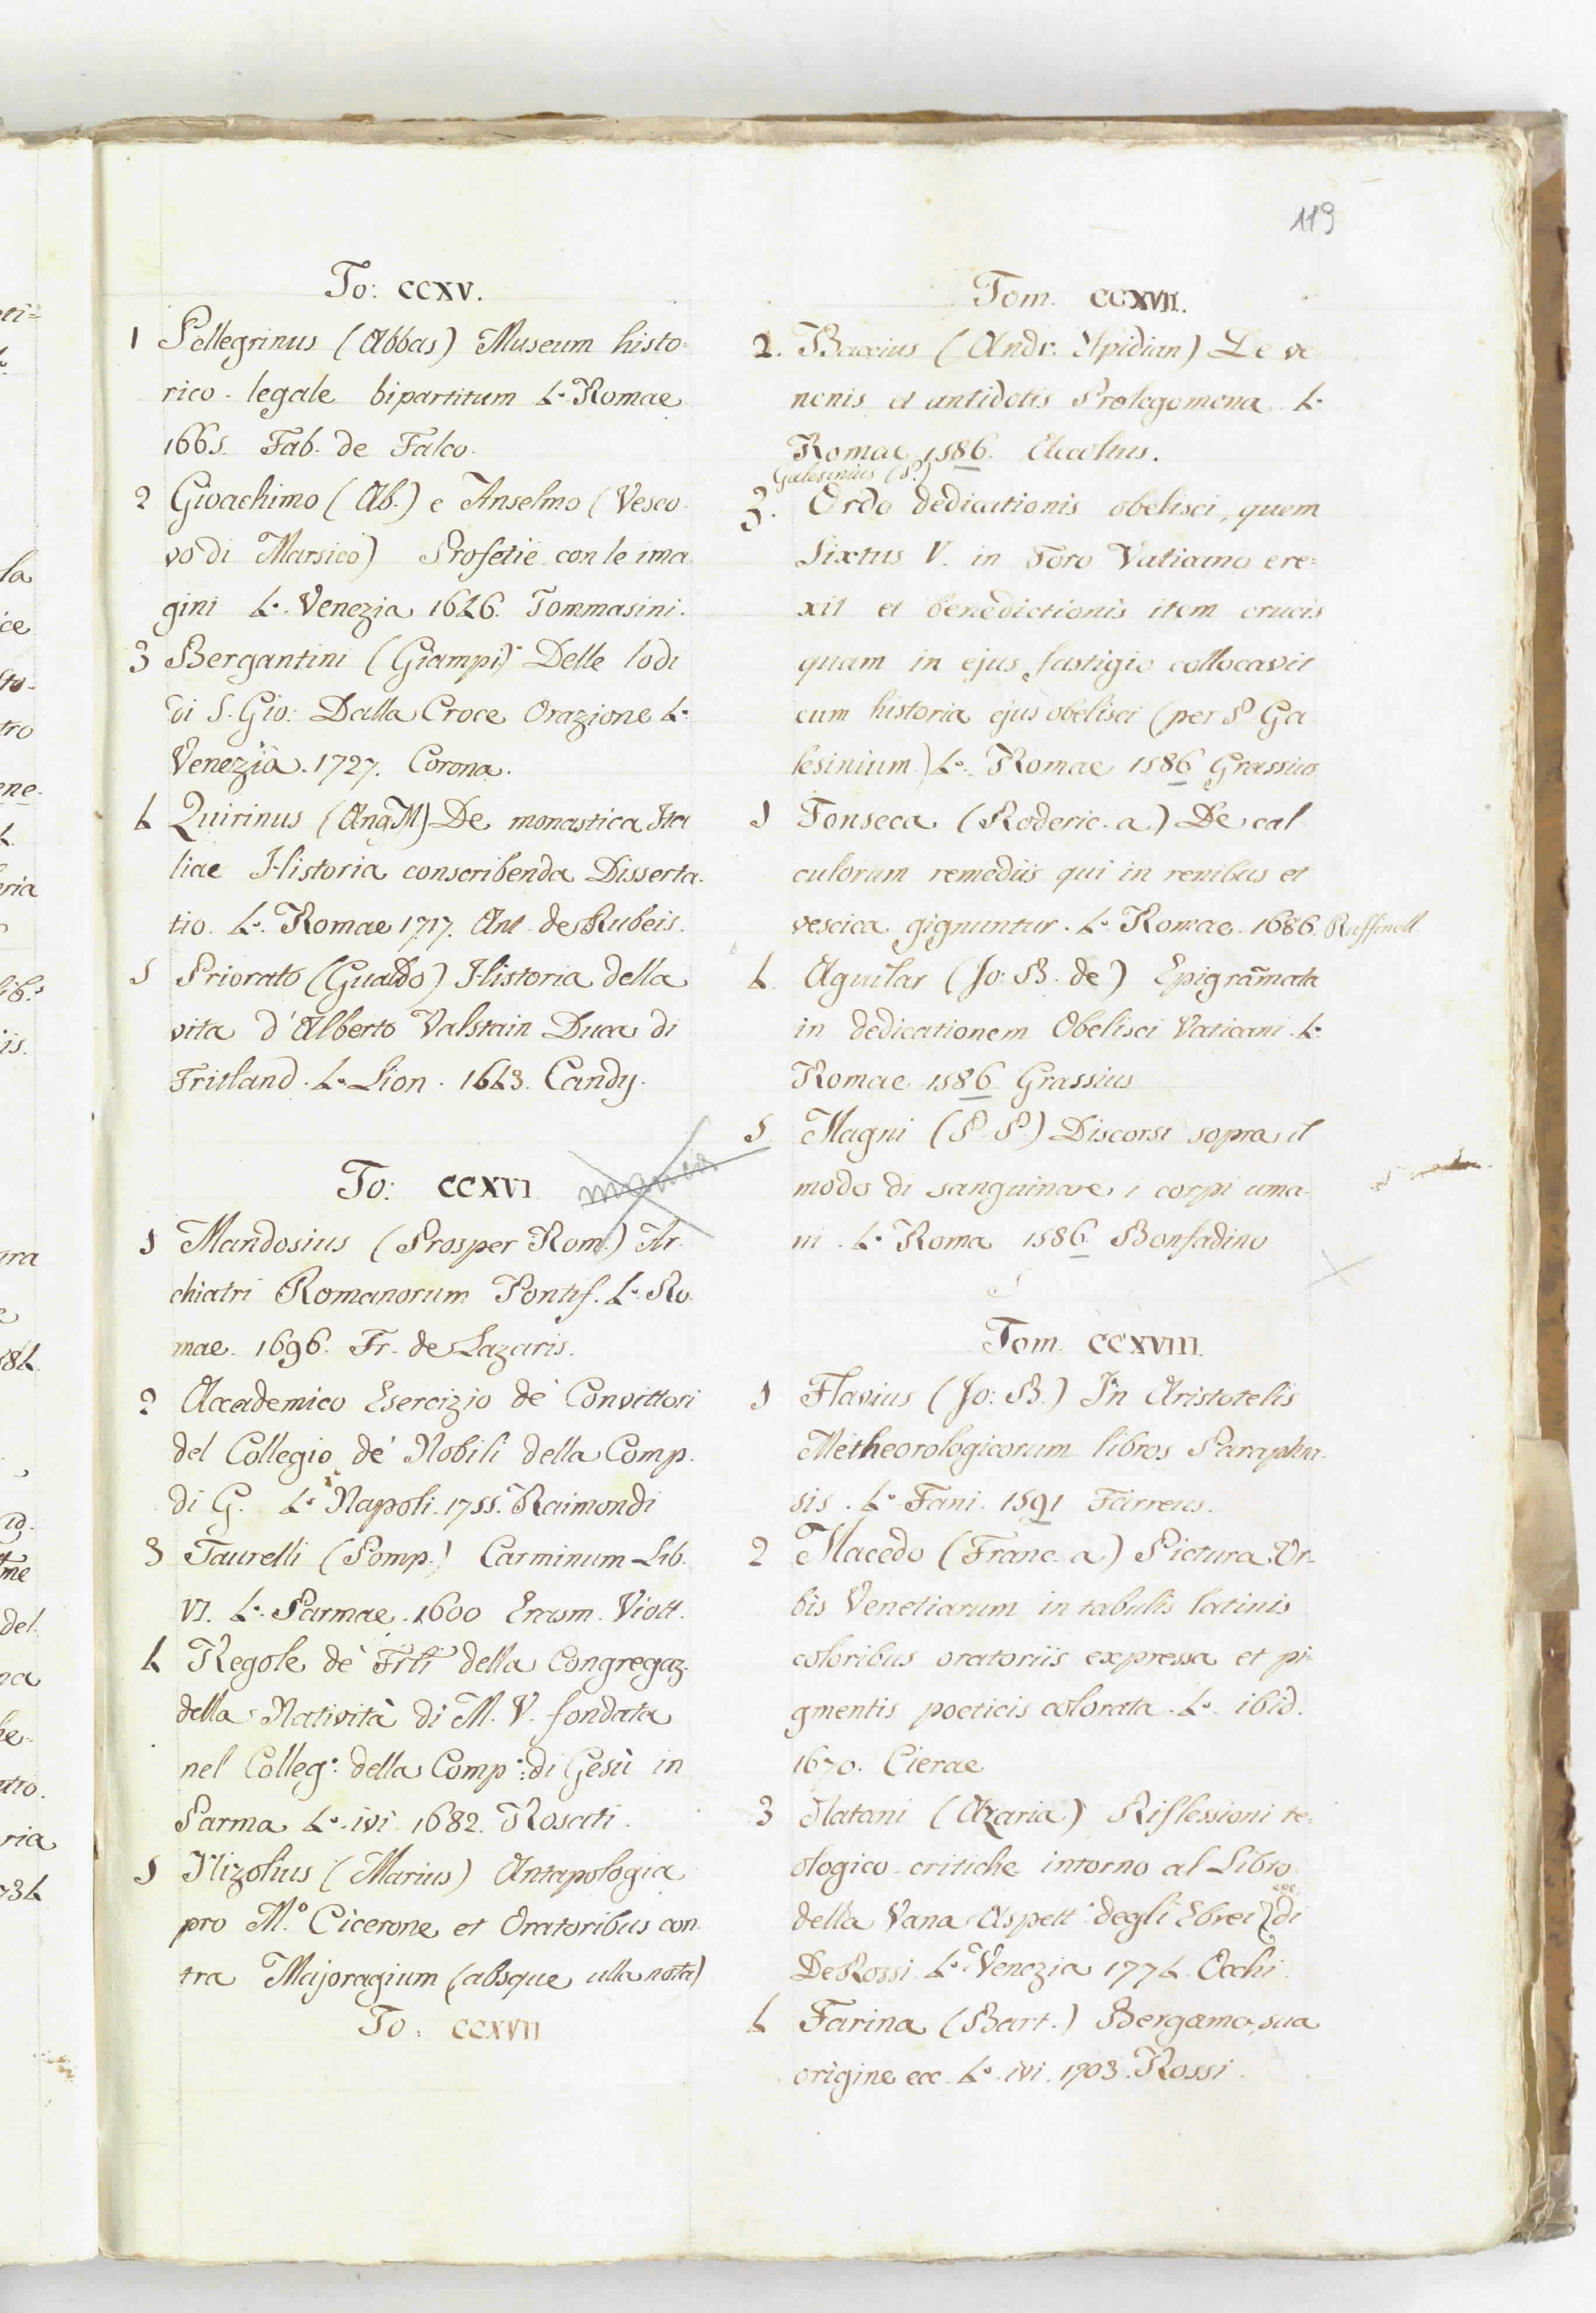 119
To: CCXV.
1 Pellegrinus (Abbas) Museum histo=
rico-legale bipartitum 4.° Romae
1665. Fab. de Falco.
2 Gioachimo (Ab.) e Anselmo (Vesco
vo di Marsico) Profetie con le ima
gini 4.° Venezia 1646. Tommasini.
3 Bergantini (Giampi) Delle lodi
di S. Gio: Dalla Croce Orazione 4.°
Venezia. 1727. Corona.
4 Quirinus (Ang. M) De monastica Ita
liae Historia conscribenda Disserta.
tio. 4.° Romae 1717. Ant. de Rubeis.
5 Priorato (Gualdo) Historia della
vita d'Alberto Valstain Duca di
Fritland. 4.° Lion. 1643. Candy.
To: CCXVI
1 Mandosius (Prosper Rom.) Ar
chiatri Romanorum Pontif. 4.° Ro.
mae. 1696. Fr. de Lazaris.
2 Accademico Esercizio de' Convittori
del Collegio de' Nobili della Comp.
di G. 4.° Napoli. 1755. Raimondi
3 Taurelli (Pomp.) Carminum Lib.
VI. 4.° Parmae. 1600 Erasm. Viott.
4 Regole de' Frli della Congregaz.
della Natività di M. V. fondata
nel Colleg: della Comp: di Gesù in
Parma 4.° ivi 1682. Rosati.
5 Nizolius (Marius) Antapologia
pro M.° Cicerone et Oratoribus con
tra Majoragium (absque ulla nota)
To: CCXVII
Tom. CCXVII.
2. Baccius (Andr. Elpidian) De ve
nenis et antidotis Prolegomena. 4.°
Romae 1586. Accoltus.
Galesinius (P.)
3. Ordo dedicationis obelisci, quem
Sixtus V. in Foro Vaticano ere=
xit et benedictionis item crucis
quam in ejus fastigio collocavit
cum historia ejus obelisci (per P. Ga
lesinium.) 4.° Romae 1586 Grassius
1 Fonseca (Roderic. a) De cal
culorum remediis qui in renibus et
vescica gignuntur. 4.° Romae. 1686. Ruffinell
4 Aguilar (Jo: B. de) Epigram̃ata
in dedicationem Obelisci Vaticani. 4.°
Romae 1586 Grassius
5 Magni (P. P.) Discorsi sopra il
modo di sanguinare i corpi uma-
ni. 4.° Roma 1586 Bonfadino
Tom. CCXVIII.
1 Flavius (Jo: B.) In Aristotelis
Metheorologicorum libros Paraphra-
sis. 4.° Fani. 1591 Farreus.
2 Macedo (Franc. a) Pictura Ur-
bis Venetiarum in tabulis latinis
coloribus oratoriis expressa et pi-
gmentis poeticis colorata. 4.° ibid.
1670. Cierae
3 Natani (Azaria) Riflessioni te=
ologico-critiche intorno al Libro
della Vana Aspett: degli Ebrei ecc. di
De Rossi. 4.° Venezia 1774. Occhi.
4 Farina (Bart.) Bergamo, sua
origine ecc. 4.° ivi. 1703. Rossi.